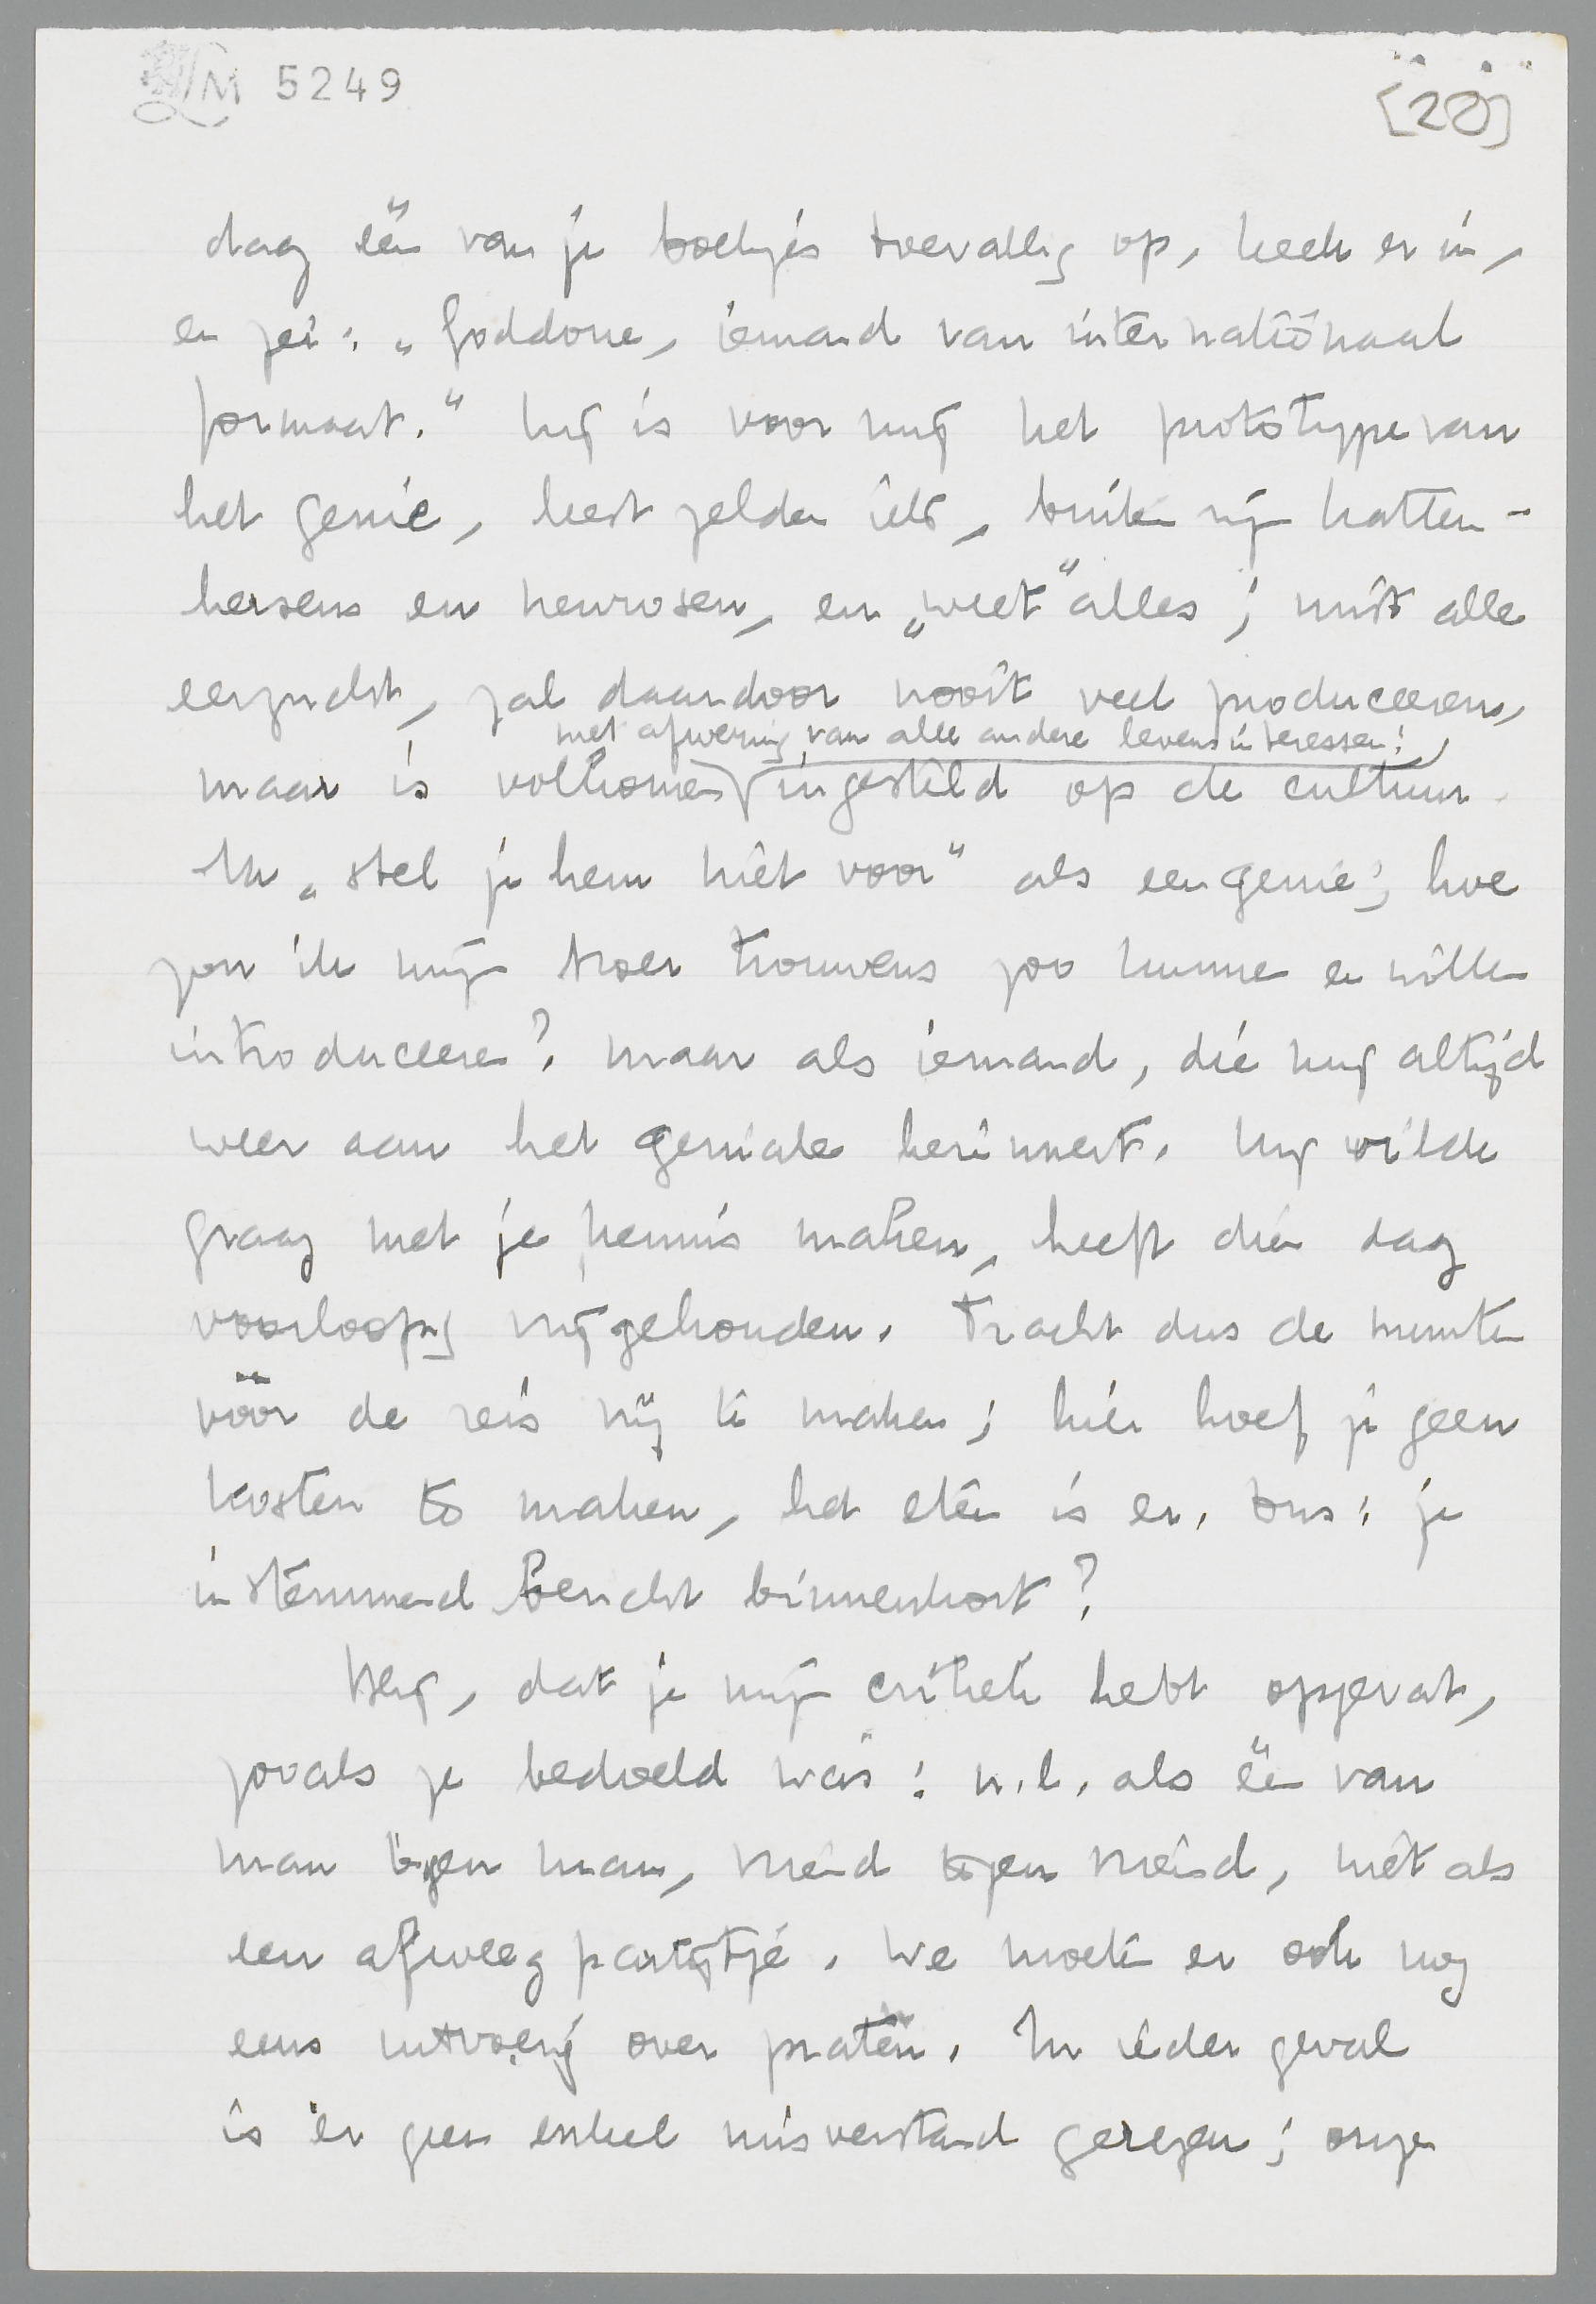 LM 5249
[20]
dag één van je boekjes toevallig op, keek er in,
en zei: „Goddome, iemand van internationaal
formaat.” Hij is voor mij het prototype van
het genie, leest zelden iets, buiten zijn katten-
hersens en neurosen, en „weet” alles; mist alle
eerzucht, zal daardoor nooit veel produceeren,
met afwering van alle andere levensinteressen!
maar is volkomen ingesteld op de cultuur.
Ik „stel je hem niet voor” als een genie; hoe
zou ik mijn broer trouwens zoo kunnen en willen
introduceeren? maar als iemand, die mij altijd
weer aan het geniale herinnert. Hij wilde
graag met je kennis maken, heeft dien dag
voorloopig vrijgehouden. Tracht dus de minuten
vóór de reis vrij te maken; hier hoef je geen
kosten te maken, het eten is er. Dus: je
instemmend bericht binnenkort?
Blij, dat je mijn critiek hebt opgevat,
zooals ze bedoeld was: n.l. als één van
man tegen man, vriend tegen vriend, niet als
een afweegpartijtje. We moeten er ook nog
eens uitvoerig over praten. In ieder geval
is er geen enkel misverstand gerezen; onze